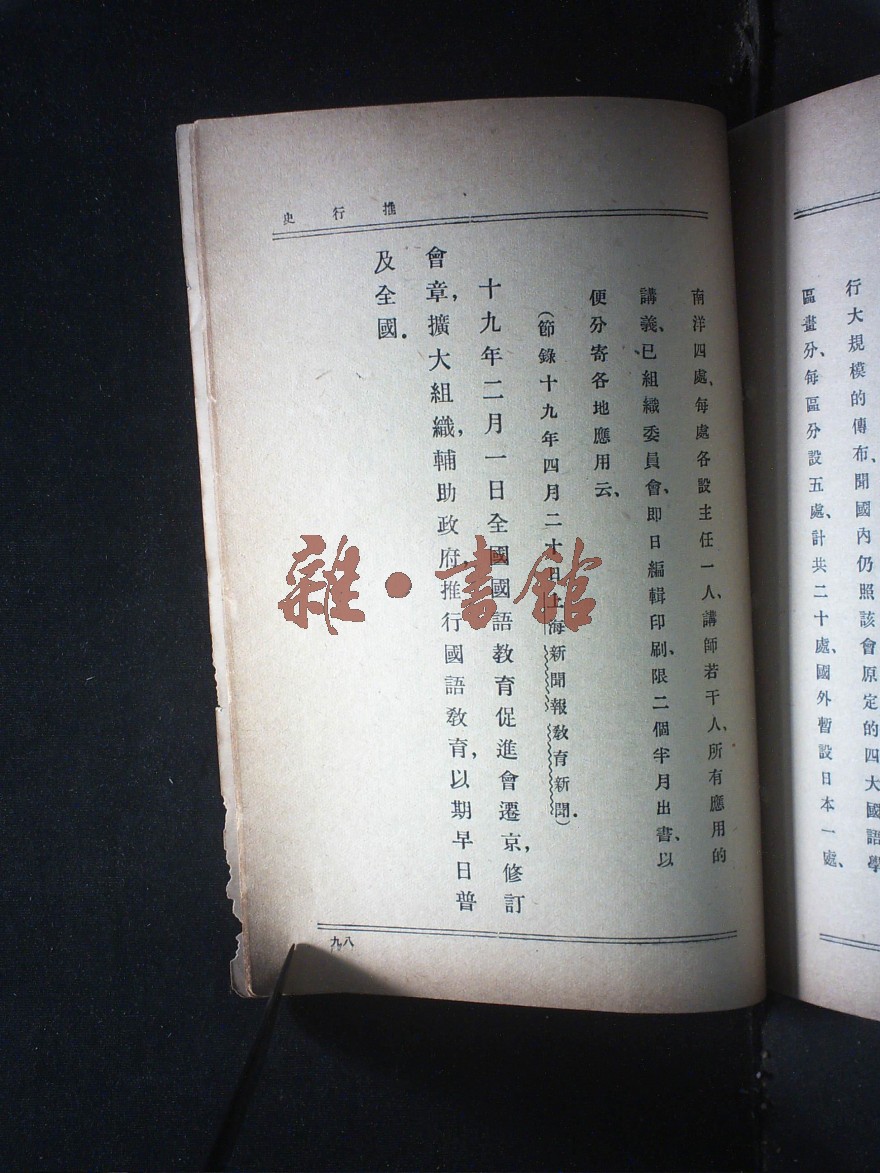 行大規模的傳布、聞國內仍照該會原定的四大國語學
區畫分、每區分設五處、計共二十處、國外暫設日本一處、
推行史
南洋四處、每處各設主任一人、講師若干人、所有應用的
講義、已組織委員會、即日編輯印刷、限二個半月出書、以
便分寄各地應用云、
(節錄十九年四月二十日上海新聞報教育新聞)．
十九年二月一日全國國語教育促進會遷京，修訂
會章，擴大組織，輔助政府推行國語教育，以期早日普
及全國．
九八
雜·書館